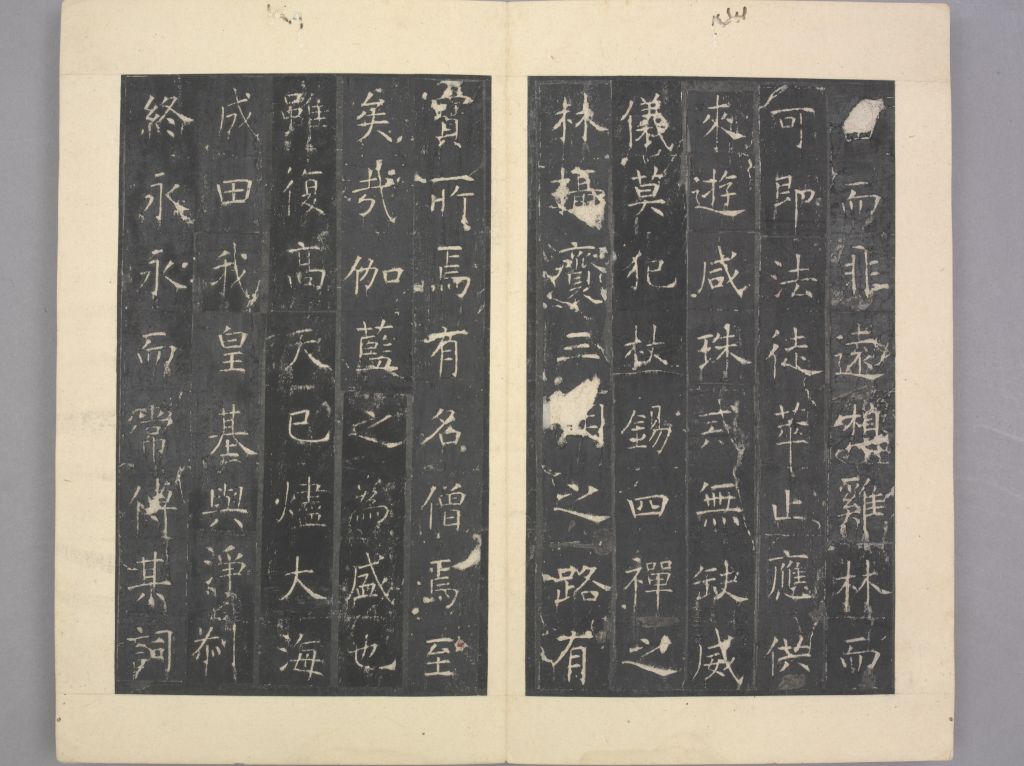 而非遠想雞林而
可即法徒萃止應供
來遊咸珠戒無缺威
儀莫犯杖錫四禪之
林攝齋三之路有
寶所焉有名僧焉至
矣哉伽藍之為盛也
雖復高天已燼大海
成田我皇基與淨刹
終永永而常傳其詞